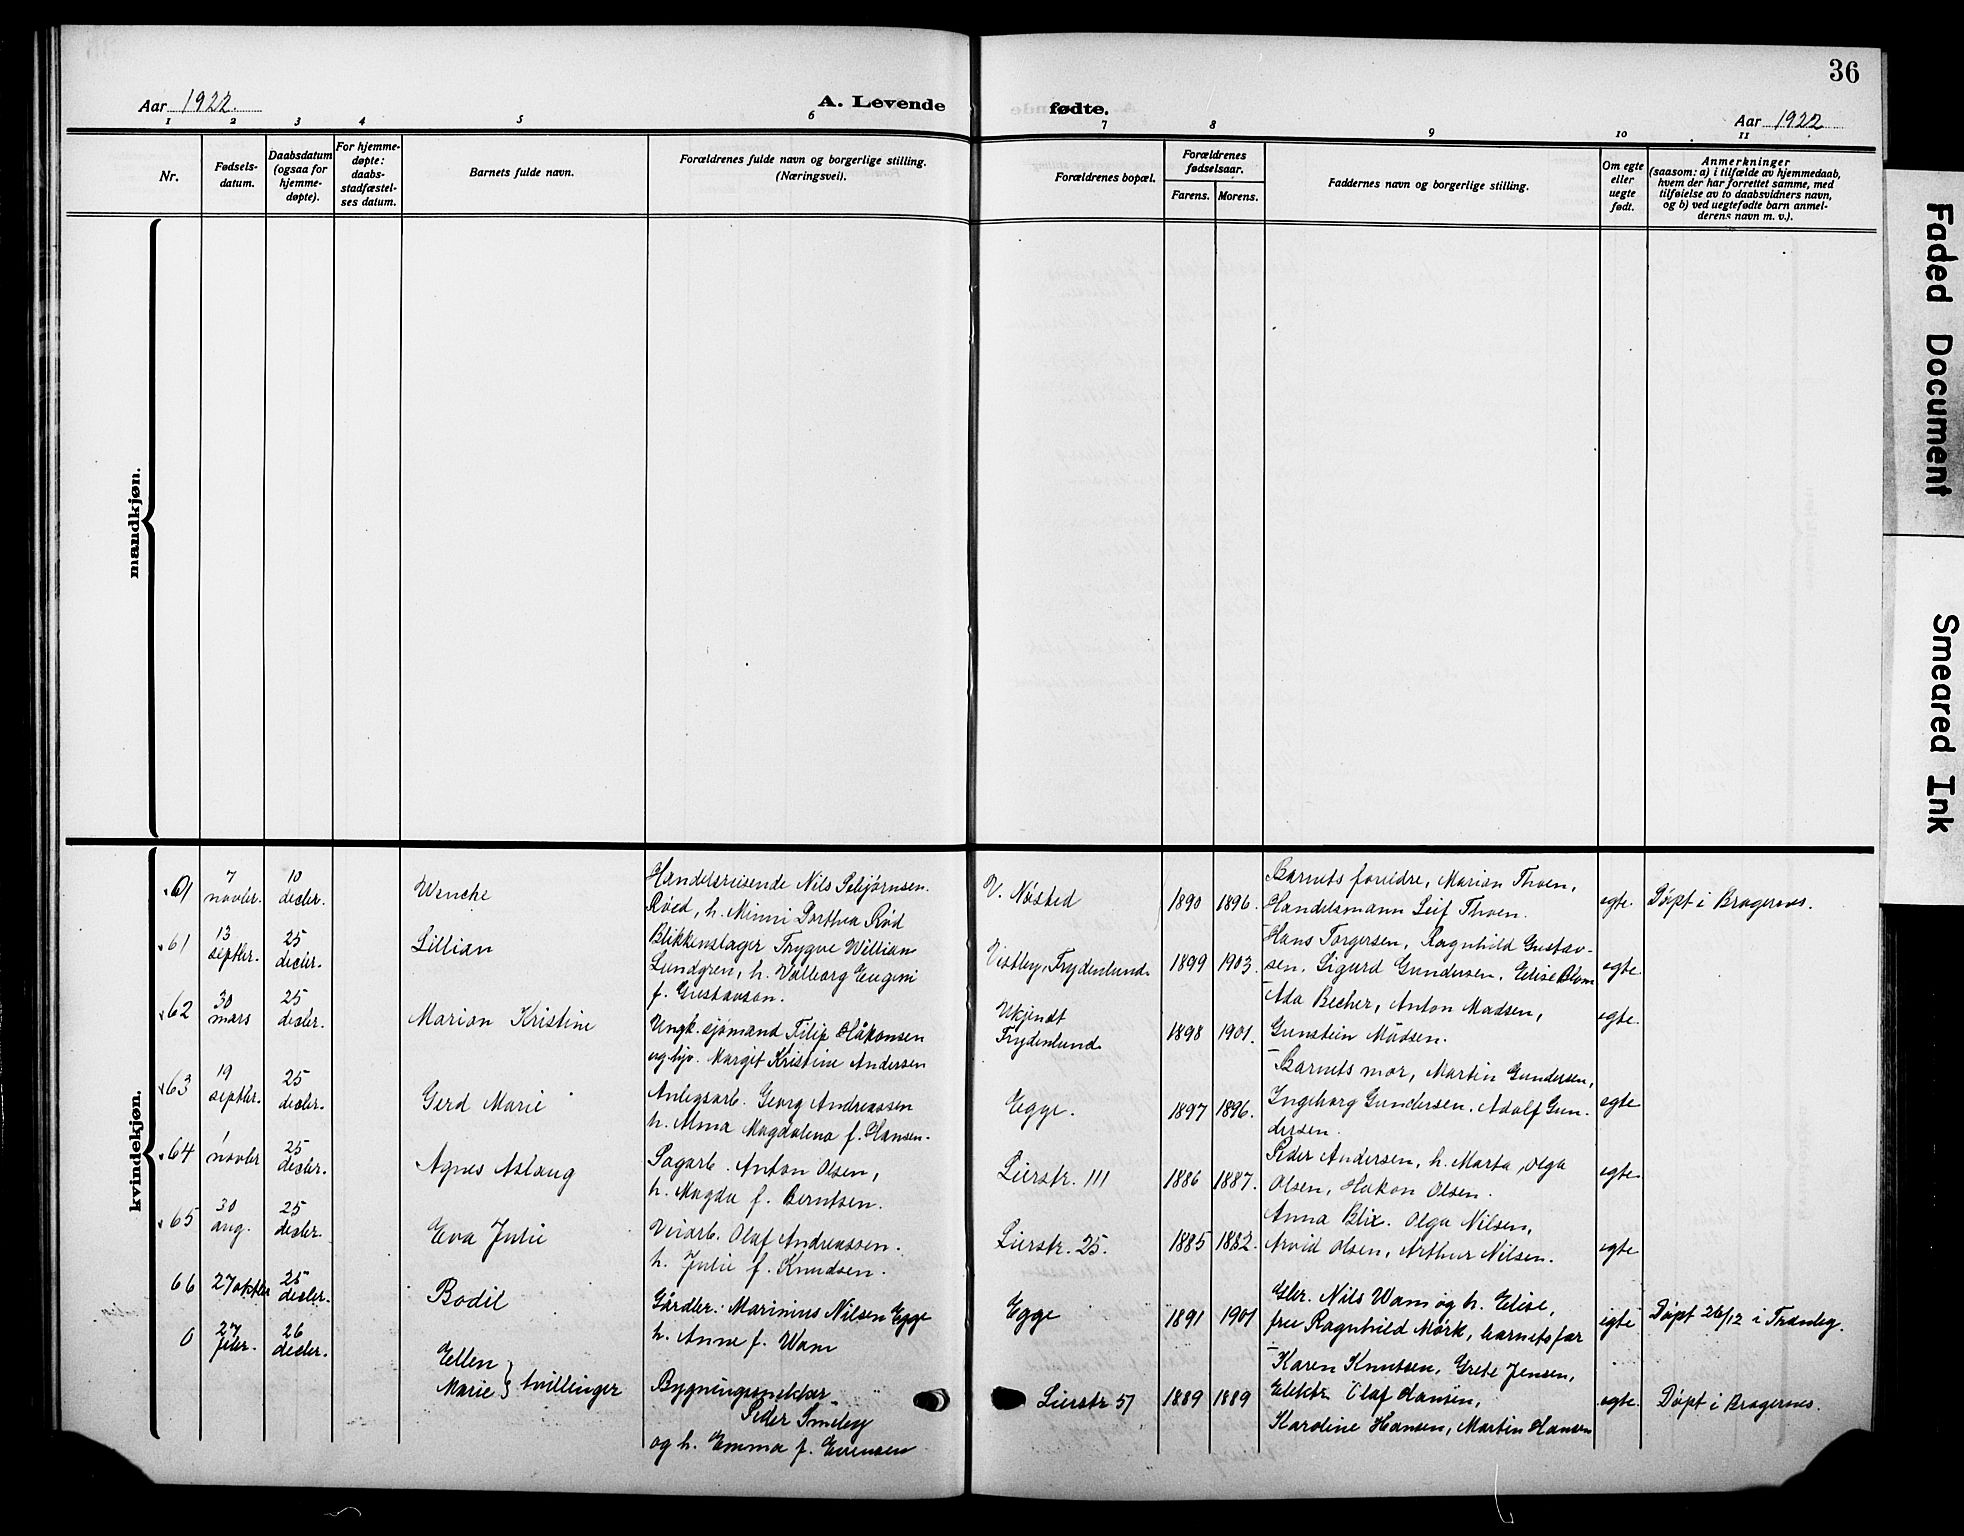 36
Aar 1922.
A. Levende
fødte.
Aar 1922
1 2 3 4 5 6 7 8 9 10 11
Nr.
Fødsels-
datum.
Daabsdatum
(ogsaa for
hjemme-
døpte).
For hjemme-
døpte:
daabs-
stadfæstel-
ses datum.
Barnets fulde navn.
Forældrenes fulde navn og borgerlige stilling.
(Næringsvei).
Forældrenes bopæl.
Forældrenes
fødselsaar.
Farens. Morens.
Faddernes navn og borgerlige stilling.
Om egte
eller
uegte
født.
Anmerkninger
(saasom: a) i tilfælde av hjemmedaab,
hvem der har forrettet samme, med
tilføielse av to daabsvidners navn,
og b) ved uegtefødte barn anmel-
derens navn m. v.).
mandkjøn.
kvindekjøn.
01
7
novbr.
10
decbr.
Wenche
Handelsreisende Nils
Røed, h. Minni Dorthea Rød
V. Nøsted
1890 1896.
Barnets foreldre, Marion Thoen,
Handelsmann Leif Thoen.
egte.
Døpt i Bragernes.
61
13
septbr.
25
decbr.
Lillian
Blikkenslager Trygve Willian
Lundgren, h. Valborg Eugeni
f. Gustavson.
Vestby, Frydenlund
1899 1903.
Hans Torgersen, Ragnhild Gustav-
sen, Sigurd Gundersen, Elise Blom
egte.
62
30
mars
25
decbr.
Marion Kristine
Ungk. sjømand Filip Håkonsen
og pjv. Margit Kristine Andersen
Ukjendt
Frydenlund
1898 1901.
Ada Becher, Anton Madsen,
Gunstein Madsen.
egte.
63
19
septbr.
25
decbr.
Gerd Marie
Anlegsarb. Georg Andreassen
h. Alma Magdalena f. Hansen.
Egge.
1897 1896.
Barnets mor, Martin Gundersen,
Ingeborg Gundersen, Adolf Gun-
dersen.
egte
64
1
novbr
25
decbr.
Agnes Aslaug
Sagarb. Anton Olsen,
h. Magda f. Berntsen.
Lierstr. 111
1886 1887.
Peder Andersen, h. Marta, Olga
Olsen, Hakon Olsen.
egte
65
30
aug.
25
decbr.
Eva Julie
Veiarb. Olaf Andreassen.
h. Julie f. Knudsen.
Lierstr. 25.
1885 1882.
Anna Blix. Olga Nilsen,
Arvid Olsen, Arthur Nilsen.
egte
66
27 oktbr
25
decbr.
Bodil
Gårdbr. Marinius Nilsen Egge
h. Anne f. Wam
Egge
1891 1901
Gbr. Nils Wam og h. Elise,
fru Ragnhild Mørk, barnets far
egte
Døpt 26/12 i Tranby.
0
27
febr.
26
decbr.
Ellen
Marie } tvillinger
Bygningssnekker
Peder Smeby
og h. Emma f. Evensen
Lierstr 57
1889 1889
Karen Knutsen, Grete Jensen,
Elektr. Olaf Hansen,
Karoline Hansen, Martin Hansen
egte.
Døpt i Bragernes.
Faded Document
Smeared Ink